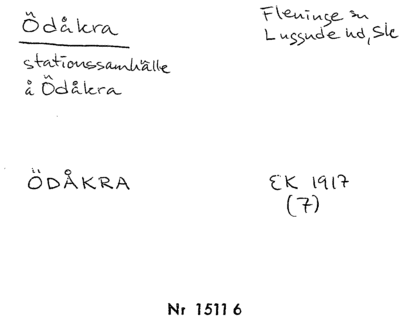 Ödåkra
Fleninge sn
Luggude hd, Sk
stationssamhälle
å Ödåkra
ÖDÅKRA
EK 1917
(7)
Nr 15116